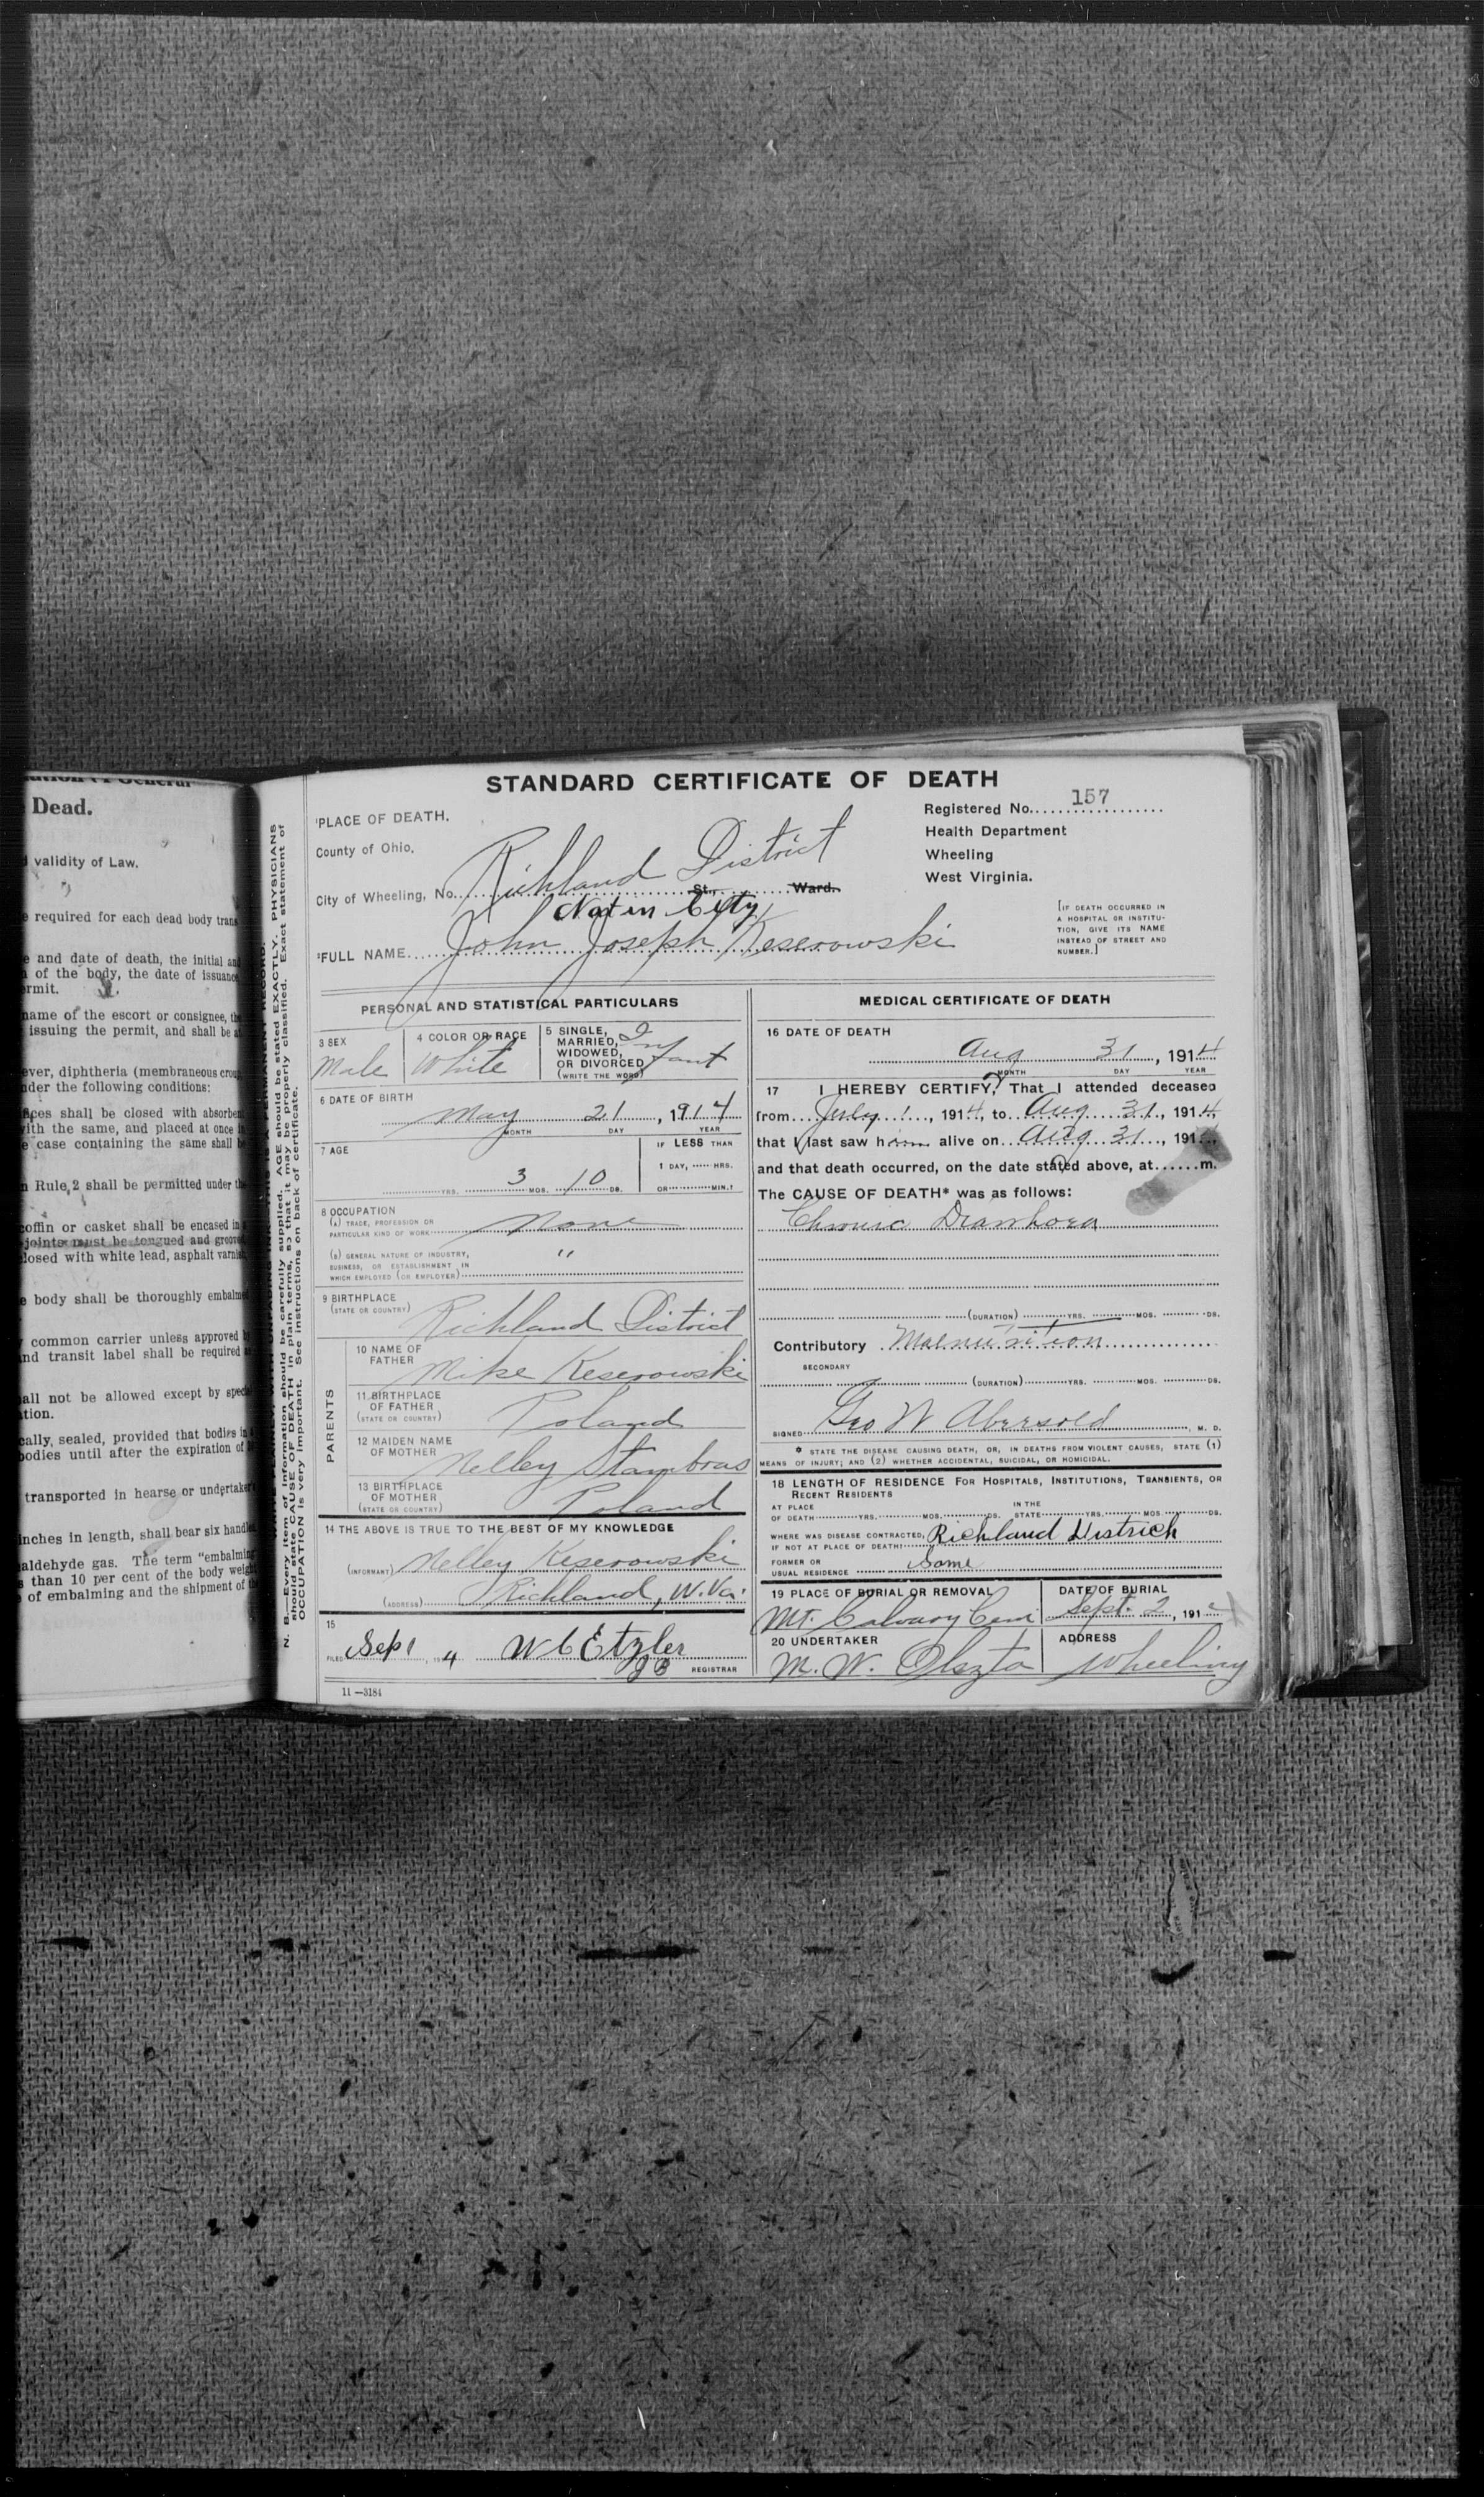 Dead.
validity of Law.
required for each dead body
and date of death, the initial and
of the body, the date of issuance
permit.
name of the escort or consignee, the
issuing the permit, and shall be
ever, diphtheria (membraneous croup,
under the following conditions:
shall be closed with absorbent
with the same, and placed at once
case containing the same shall
Rule 2 shall be permitted under the
coffin or casket shall be encased in
joints must be tongued and grooved
closed with white lead, asphalt varnish
body shall be thoroughly embalmed
common carrier unless approved
and transit label shall be required
shall not be allowed except by
cally, sealed, provided that bodies
bodies until after the expiration of
transported in hearse or undertaker
inches in length, shall bear six
aldehyde gas. The term "embalming
than 10 per cent of the body weight
of embalming and the shipment of
N. B.—Every item of information should be carefully supplied. AGE should be stated EXACTLY. PHYSICIANS
should state CAUSE OF DEATH in plain terms, so that it may be properly classified. Exact statement of
OCCUPATION is very important. See instructions on back of certificate.
STANDARD CERTIFICATE OF DEATH
1PLACE OF DEATH.
Registered No. 157
County of Ohio.
Health Department
Wheeling
West Virginia.
City of Wheeling, No. Richland District St., Ward.
Not in City
[IF DEATH OCCURRED IN
A HOSPITAL OR INSTITU-
TION, GIVE ITS NAME
INSTEAD OF STREET AND
NUMBER.]
2FULL NAME John Joseph Keserowski
PERSONAL AND STATISTICAL PARTICULARS
3 SEX
Male
4 COLOR OR RACE
White
5 SINGLE,
MARRIED,
WIDOWED,
OR DIVORCED
(WRITE THE WORD)
Infant
6 DATE OF BIRTH
May 21, 1914
MONTH DAY YEAR
7 AGE
IF LESS THAN
1 DAY, HRS.
YRS. 3 MOS. 10 DS. OR MIN.?
8 OCCUPATION
(A) TRADE, PROFESSION OR
PARTICULAR KIND OF WORK None
(B) GENERAL NATURE OF INDUSTRY,
BUSINESS, OR ESTABLISHMENT IN
WHICH EMPLOYED (OR EMPLOYER) "
9 BIRTHPLACE
(STATE OR COUNTRY) Richland District
PARENTS
10 NAME OF
FATHER Mike Keserowski
11 BIRTHPLACE
OF FATHER
(STATE OR COUNTRY) Poland
12 MAIDEN NAME
OF MOTHER Nelley Stambras
13 BIRTHPLACE
OF MOTHER
(STATE OR COUNTRY) Poland
14 THE ABOVE IS TRUE TO THE BEST OF MY KNOWLEDGE
(INFORMANT) Nelley Keserowski
(ADDRESS) Richland, W. Va.
15
FILED Sep 1, 191 4 W C Etzler
REGISTRAR
11—3184
MEDICAL CERTIFICATE OF DEATH
16 DATE OF DEATH
Aug 31, 1914
MONTH DAY YEAR
17 I HEREBY CERTIFY, That I attended deceased
from July 1, 1914, to Aug 31, 1914,
that I last saw him alive on Aug 31, 191
and that death occurred, on the date stated above, at m.
The CAUSE OF DEATH* was as follows:
Chronic Diarrhoea
(DURATION) YRS. MOS. DS.
Contributory Malnutrition
SECONDARY
(DURATION) YRS. MOS. DS.
SIGNED Geo W Abersold, M. D.
* STATE THE DISEASE CAUSING DEATH, OR, IN DEATHS FROM VIOLENT CAUSES, STATE (1)
MEANS OF INJURY; AND (2) WHETHER ACCIDENTAL, SUICIDAL, OR HOMICIDAL.
18 LENGTH OF RESIDENCE FOR HOSPITALS, INSTITUTIONS, TRANSIENTS, OR
RECENT RESIDENTS
AT PLACE IN THE
OF DEATH YRS. MOS. DS. STATE YRS. MOS. DS.
WHERE WAS DISEASE CONTRACTED,
IF NOT AT PLACE OF DEATH? Richland District
FORMER OR
USUAL RESIDENCE Same
19 PLACE OF BURIAL OR REMOVAL
Mt. Calvary Cem
DATE OF BURIAL
Sept. 2, 1914
20 UNDERTAKER
M. W. Olszta
ADDRESS
Wheeling